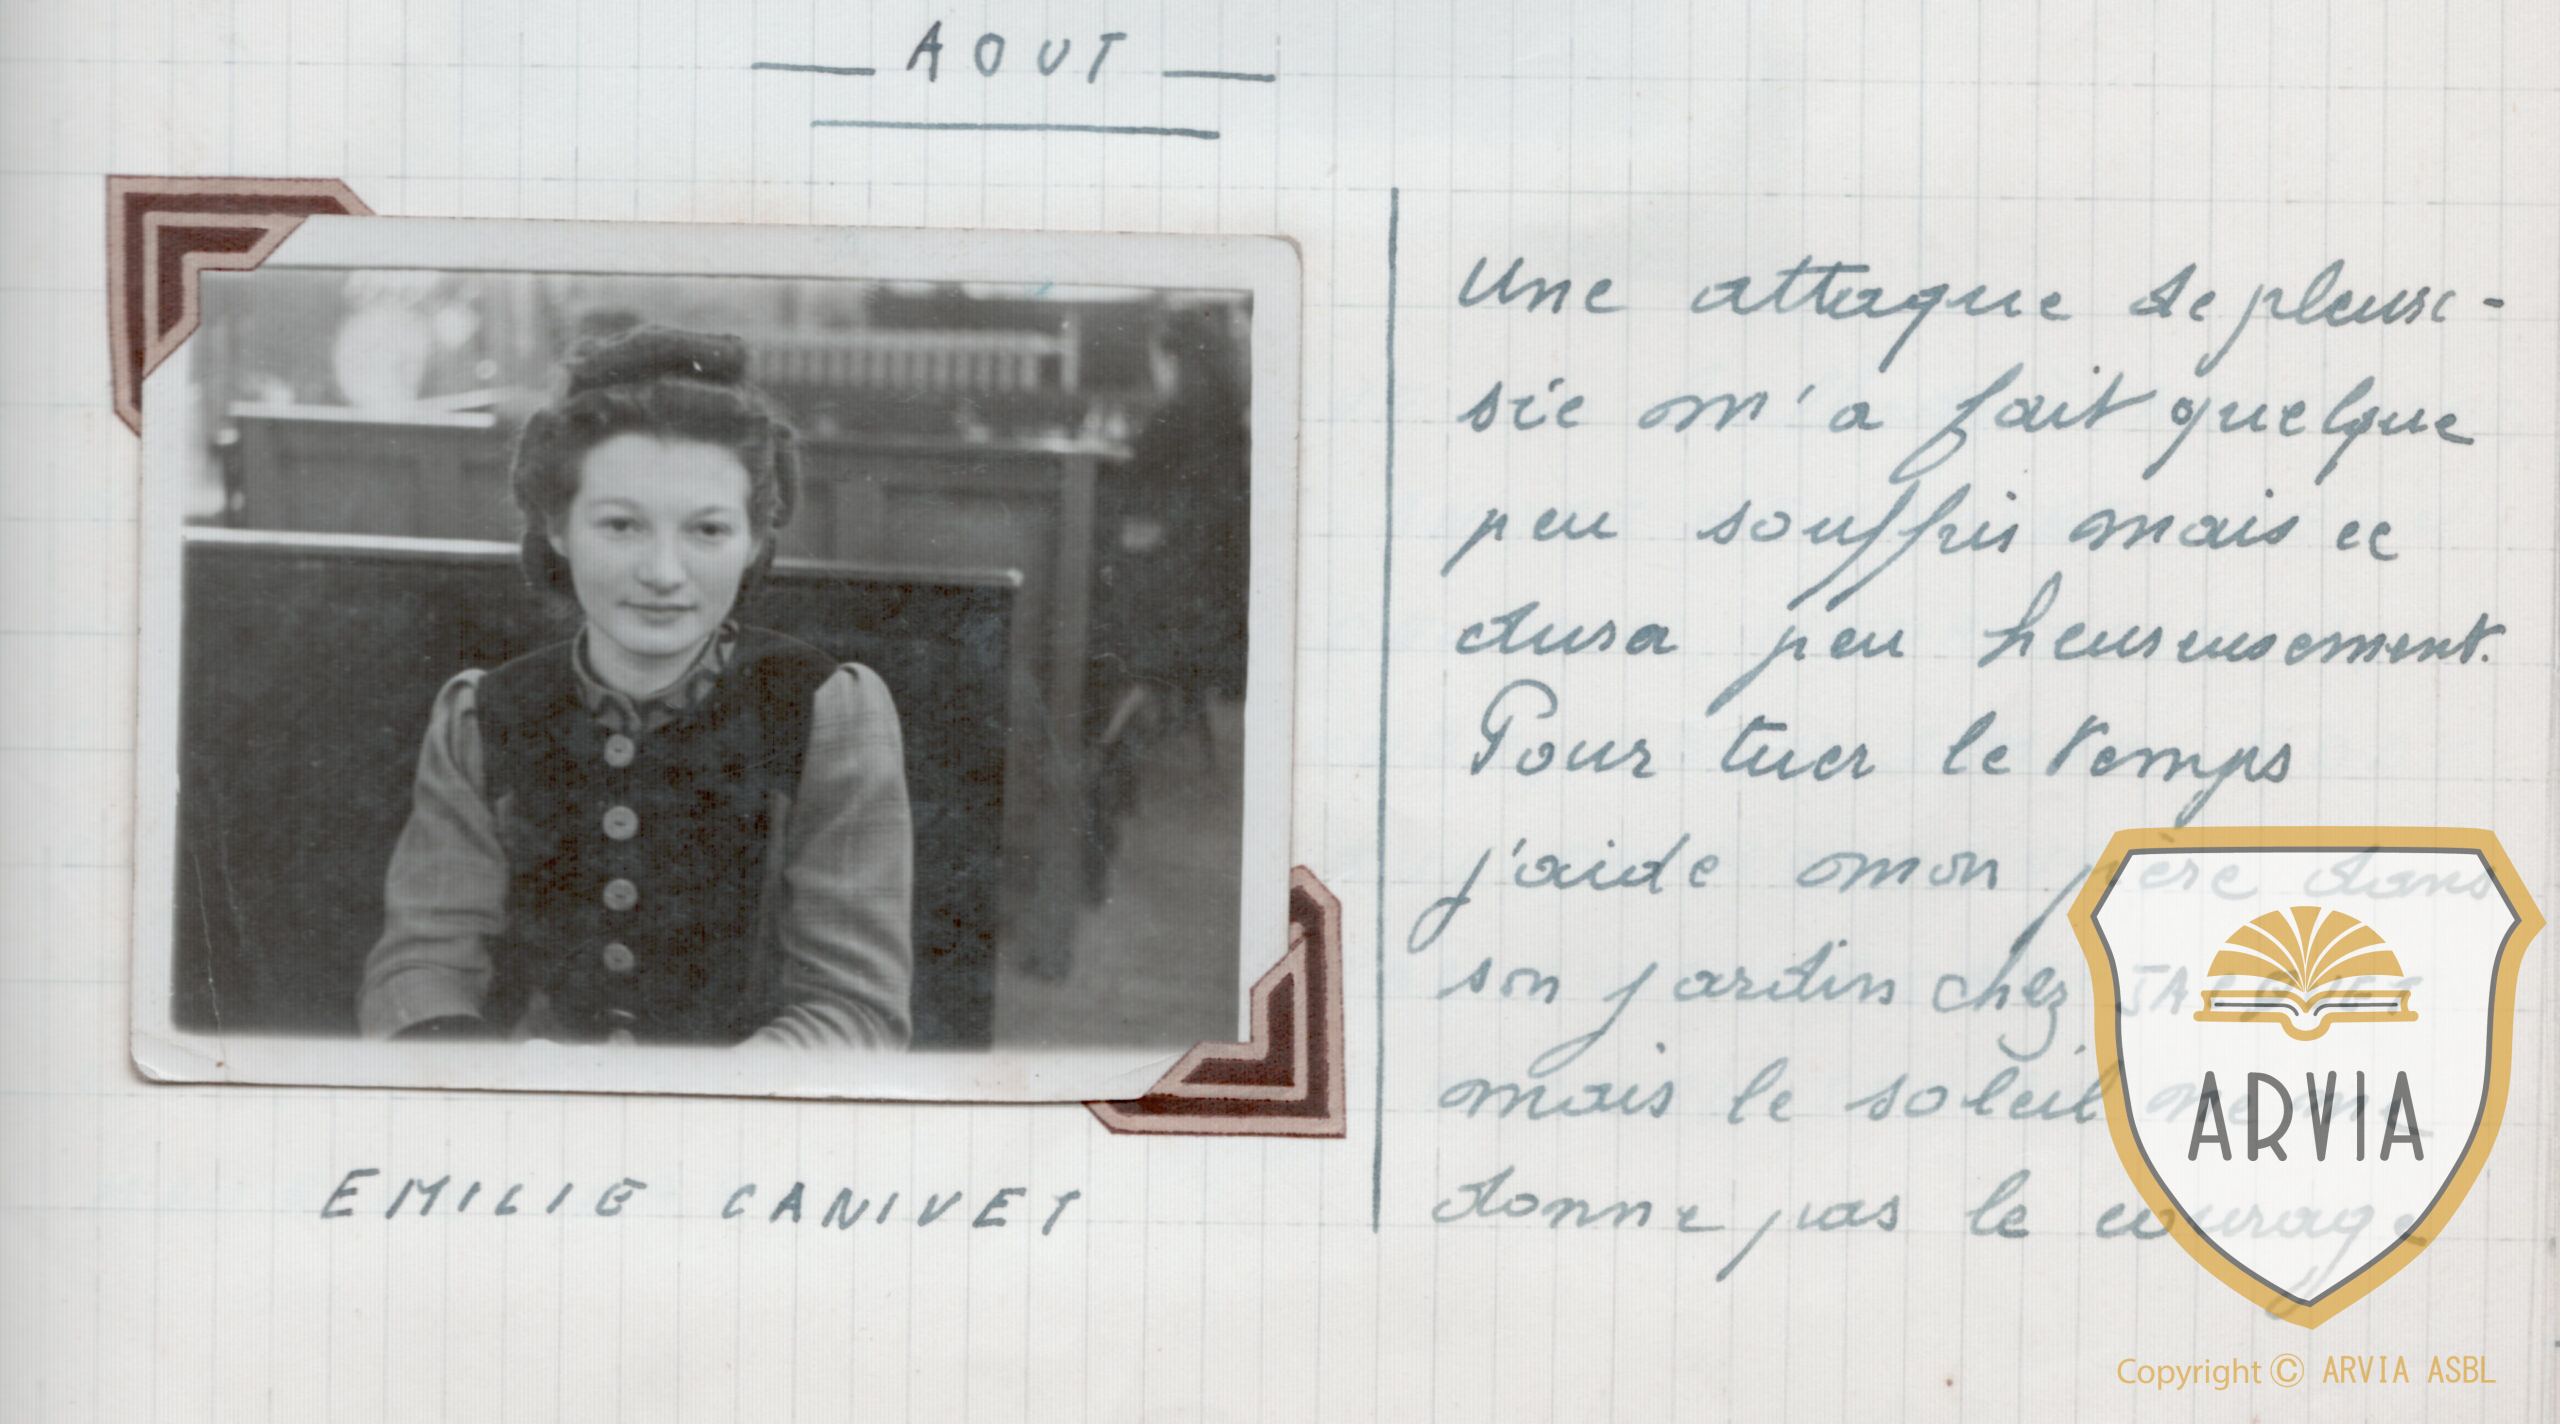 AOUT
Une attaque de pleuré-
sie m'a fait quelque
peu souffris mais ce
dura peu heureusement.
Pour tuer le temps
j'aide mon père dans
son jardin chez JACQUET
mais le soleil ne me
donne pas le courage
EMILIE CANIVET
ARVIA
Copyright © ARVIA ASBL